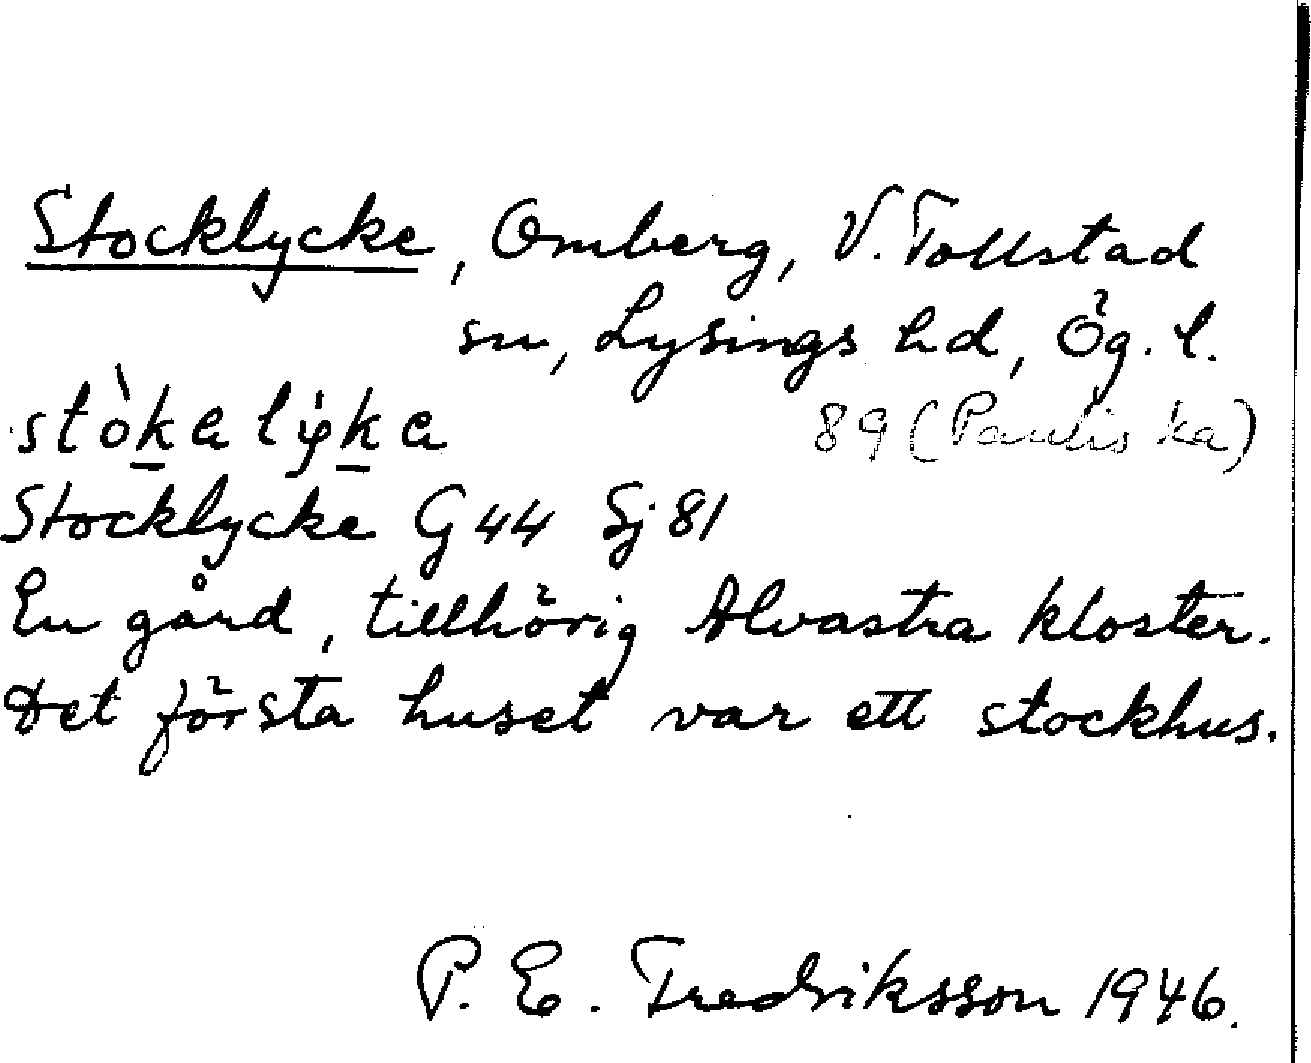 Stocklycke, Omberg, V. Tollstad
sn, Lysings hd, Ög. l.
stò̱kalýka 89 (Paulis ka)
Stocklycke G 44 Sj 81
En gård, tillhörig Alvastra kloster.
Det första huset var ett stockhus.
P. E. Fredriksson 1946.